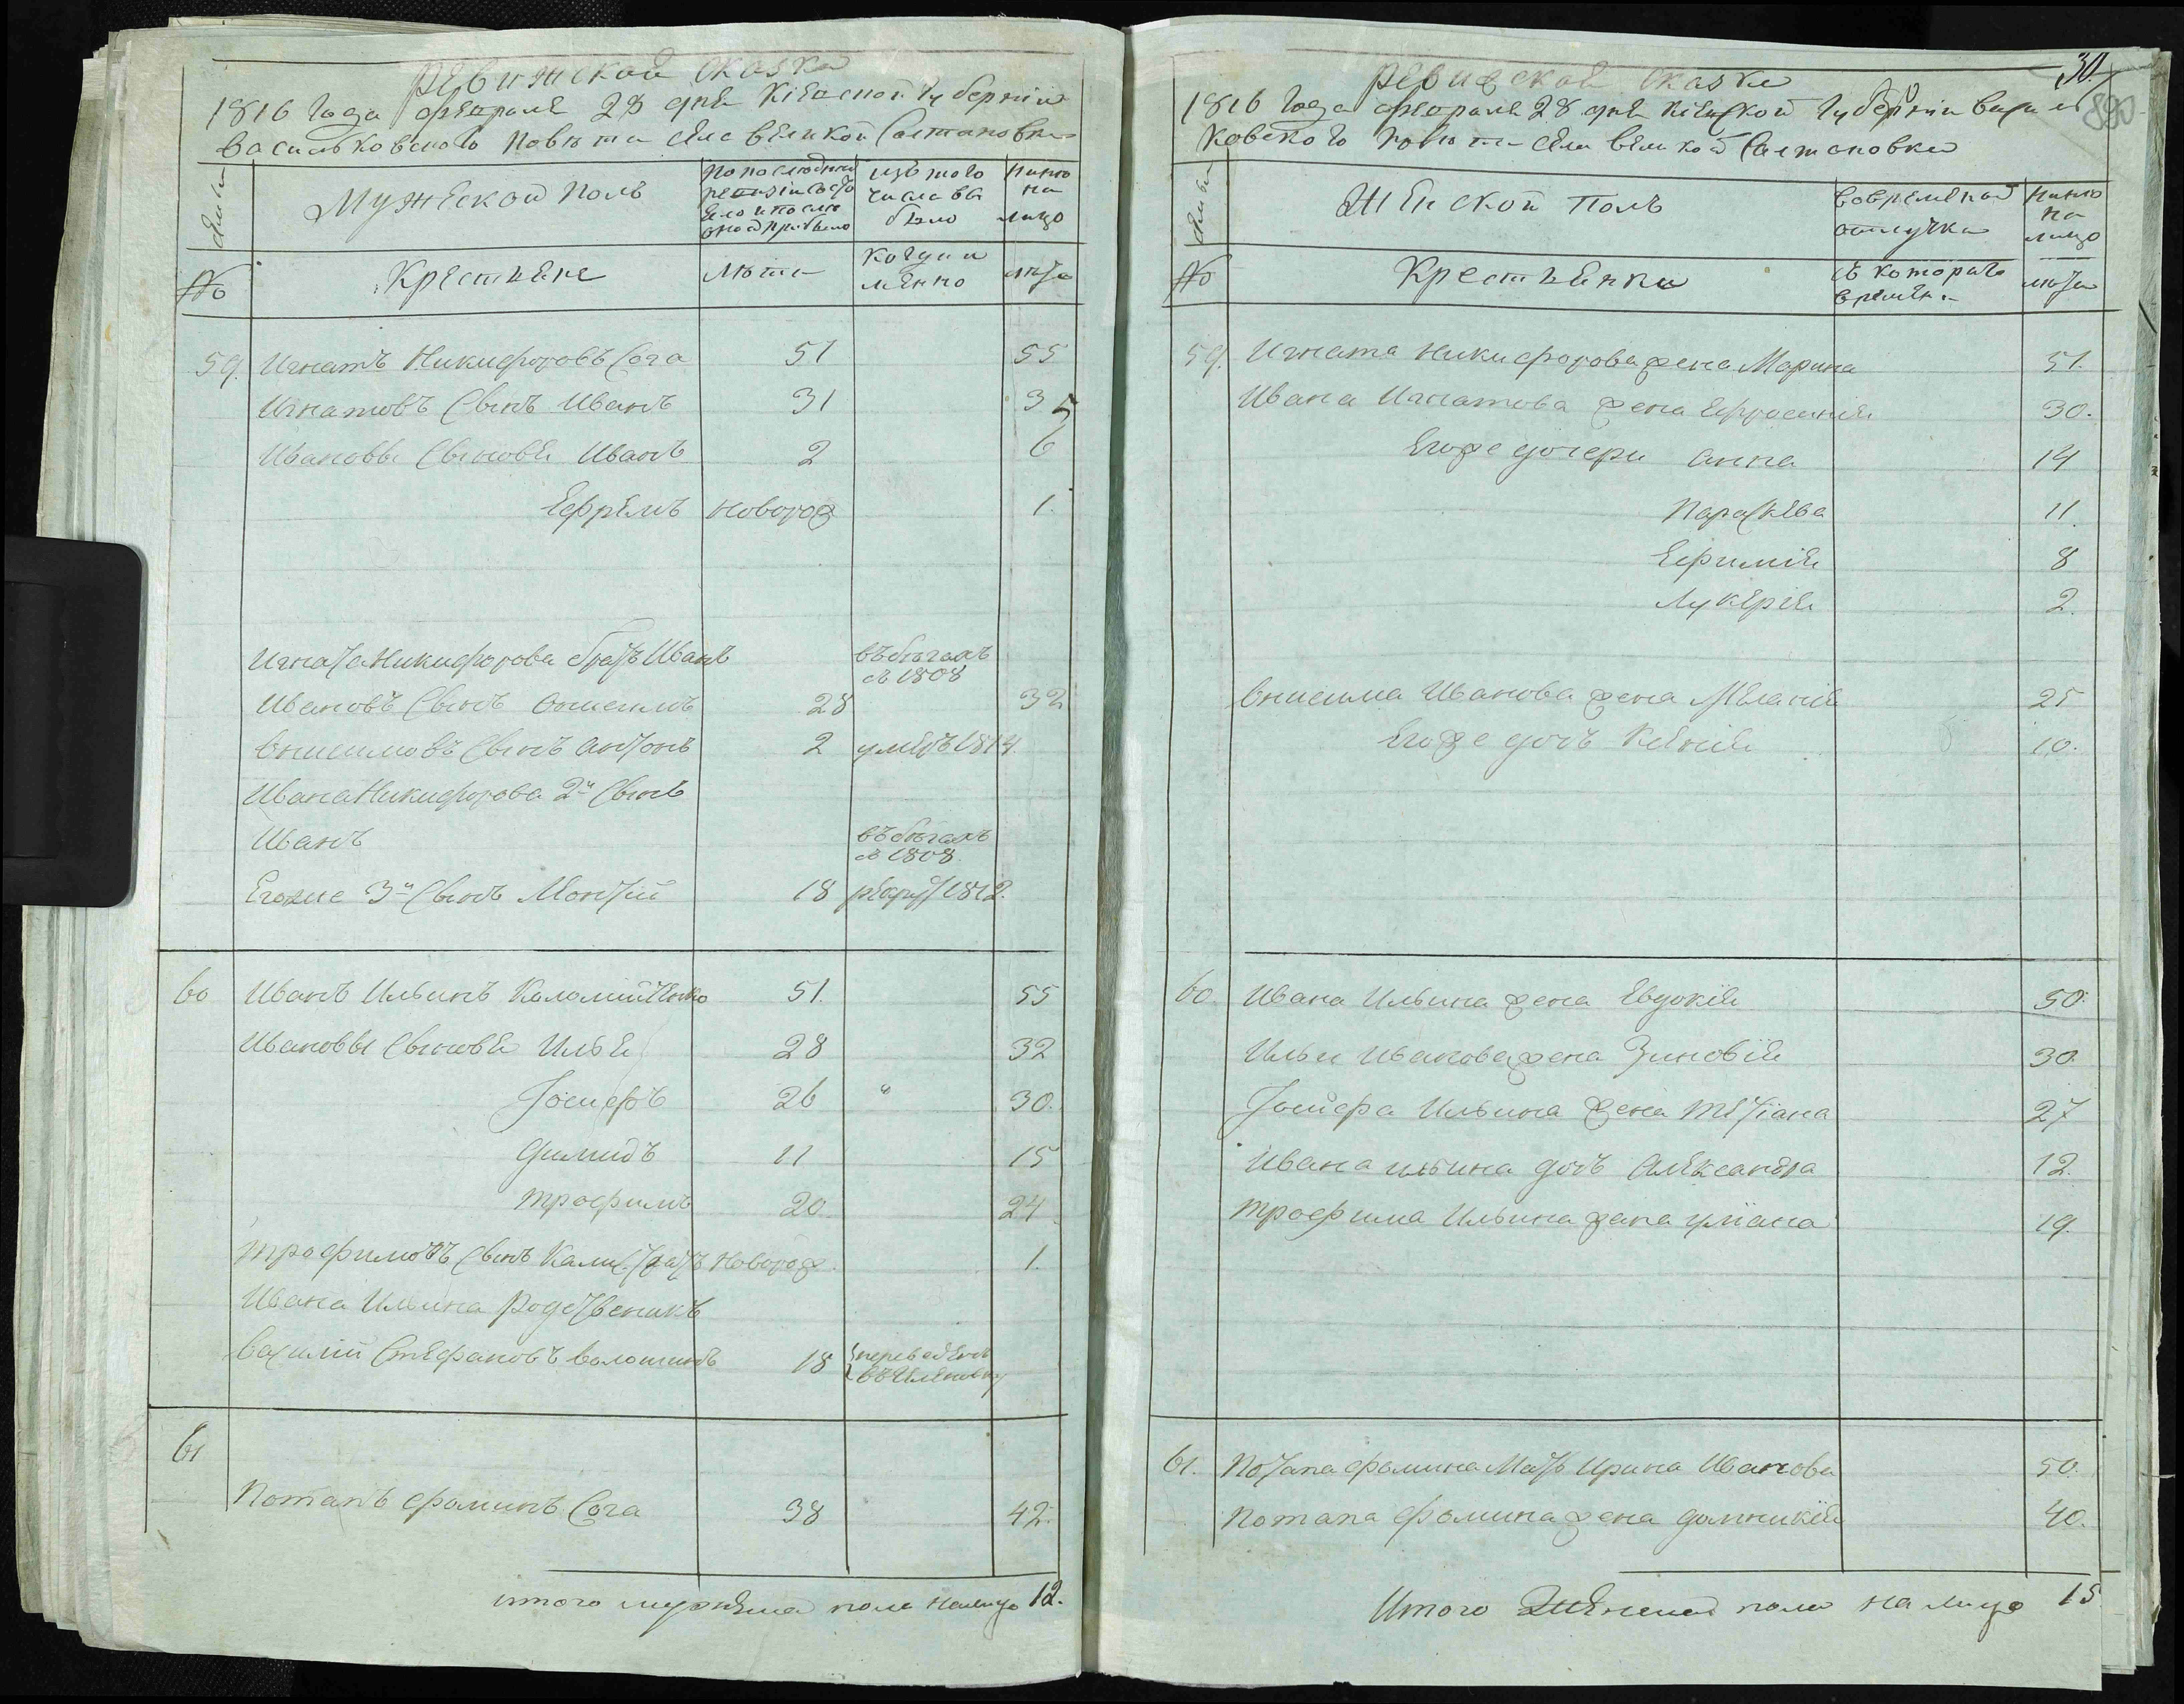 Ревижской сказки
1816 Года февраля 28 дня Кіевской Губерніи
Васильковского Повѣта села Великой Салтановки
семьи
Мужеской полъ
По последней ревизіи состояло и после оной прибыло
изъ того числа выбыло
ныне на лицо
№
Крестьяне
лѣта
когда именно
лѣта
59. Игнатъ Никифоровъ Сога 51 55
Игнатовъ Сынъ Иванъ 31 35
Ивановы Сыновья Иванъ 2 6
Ефремъ новорож 1.
Игната Никифорова братъ Иванъ въ бѣгахъ съ 1808
Ивановъ Сынъ Онисимъ 28 32
Онисимовъ Сынъ Антонъ 2 умеръ 1814
Ивана Никифорова 2й Сынъ
Иванъ въ бѣгахъ съ 1808.
Егоже 3й Сынъ Монтій 18 рекрут 1812.
60 Иванъ Ильинъ Коломийченко 51. 55
Ивановы Сыновья Илья 28 32
Іосифъ 26 " 30.
Дилидъ 11 15
Трофимъ 20 24
Трофимовъ Сынъ Калистратъ новорож. 1.
Ивана Ильина Родственикъ
Василій Стефановъ Волошинъ 18 переведенъ
61
Потапъ Фоминъ Сога 38 42.
итого мужеска пола налицо 12.
30.
890
Ревижской сказки
1816 Года февраля 28 дня Кіевской Губерніи Василь
ковского Повѣта села Великой Салтановки
семьи
Женской Полъ
Во временной отлучке
ныне на лицо
№
Крестьянки
съ которого времени
лѣта
59. Игната Никифорова жена Марина 51.
Ивана Игнатова жена Ефросинія 30.
Егоже дочери Анна 14
Параскева 11.
Ефимія 8
Лукерія 2.
Онисима Иванова жена Меланія 25
Егоже дочь Ксенія 10.
60. Ивана Ильина жена Евдокія 50.
Ильи Иванова жена Зиновія 30.
Іосифа Ильина жена Тетіана 27
Ивана ильина дочь Александра 12.
Трофима Ильина жена уліана 19.
61. Потапа Фомина Мать Ирина Иванова 50.
Потапа Фомина жена домникія 40.
Итого Женска пола на лицо 15